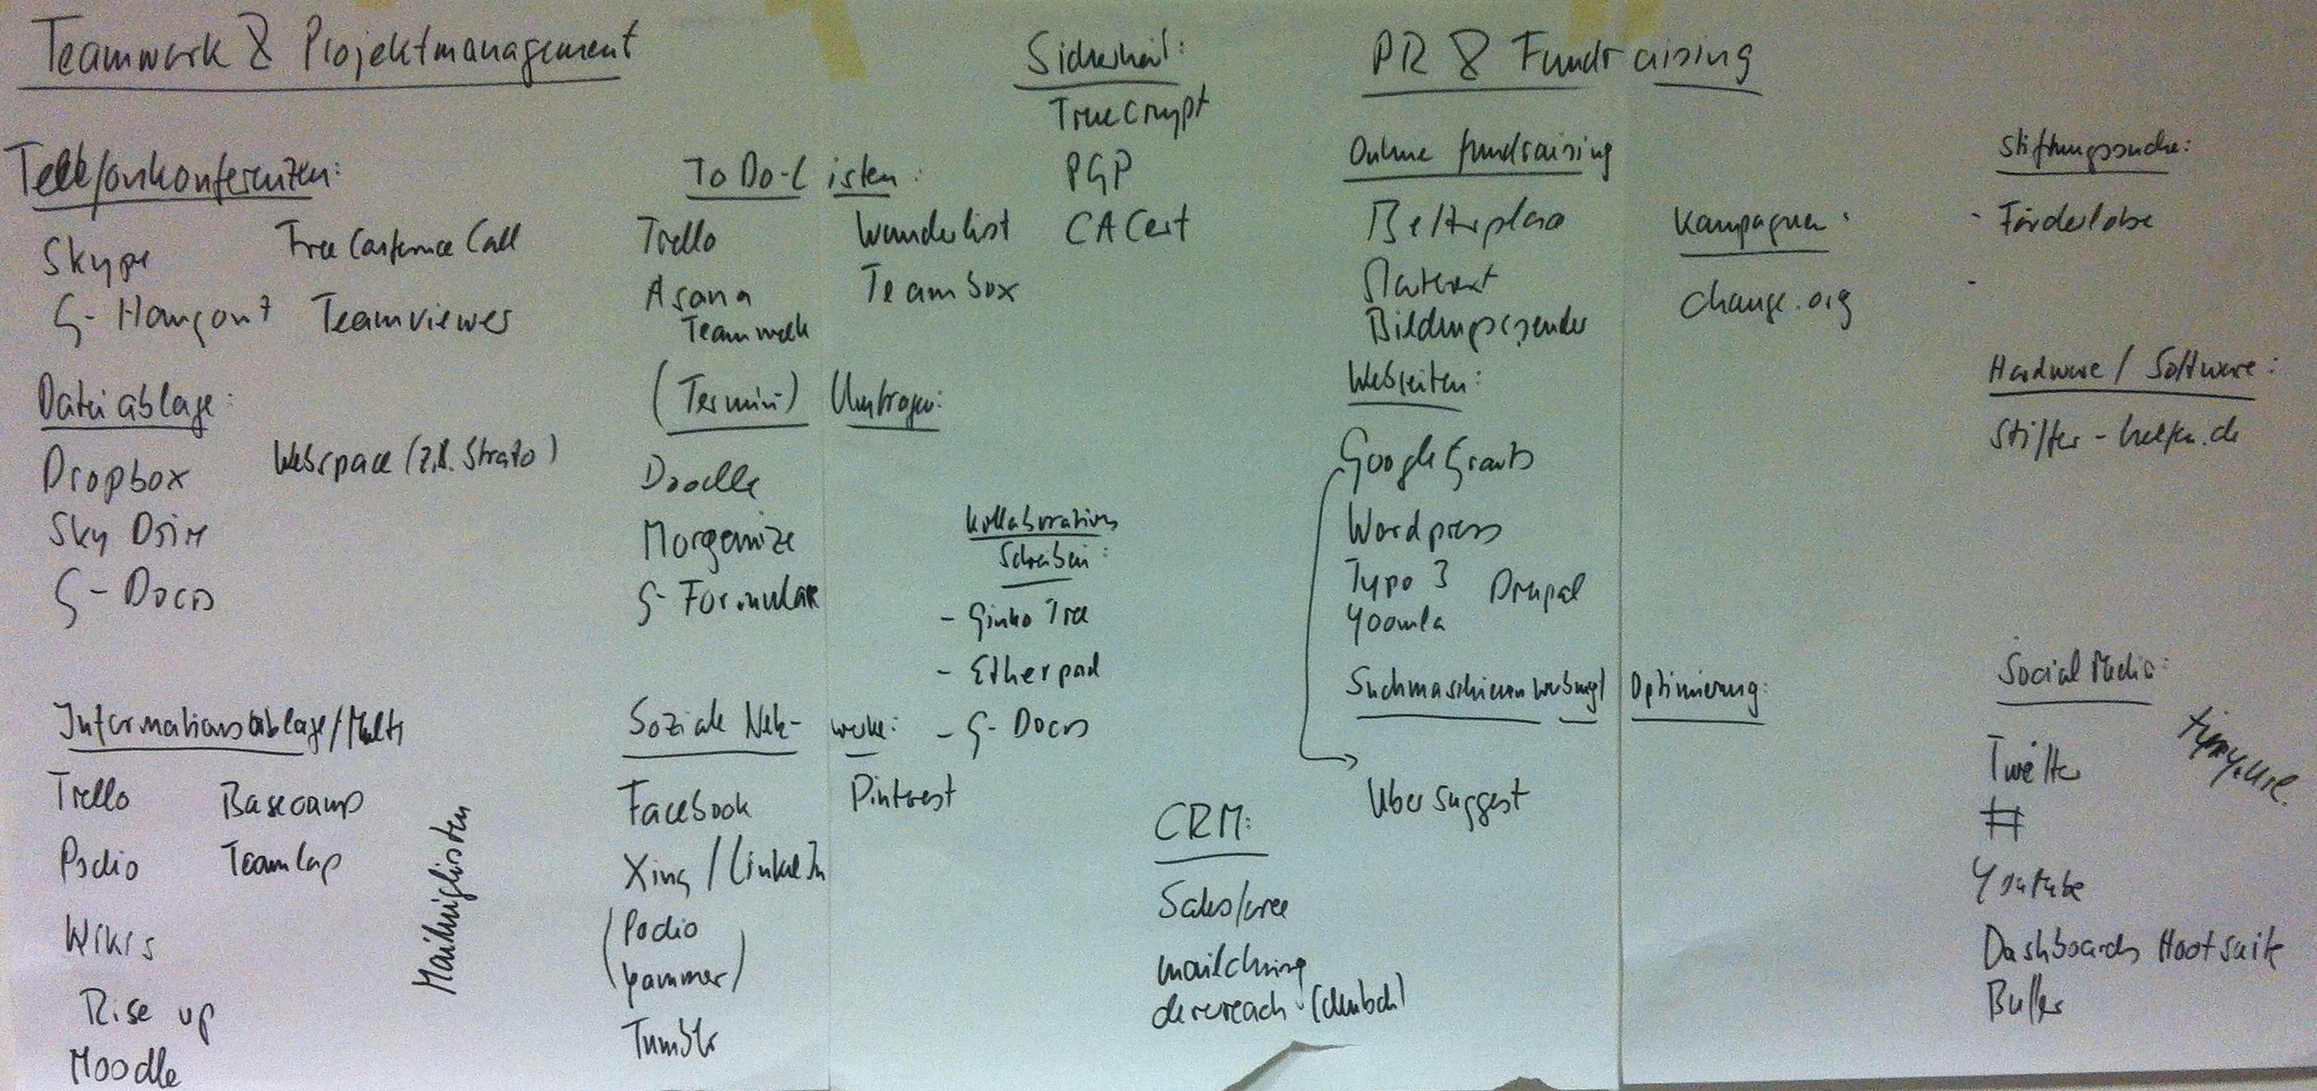 Teamwork & Projektmanagement
Telefonkonferenzen:
Skype
Free Conference Call
G-Hangout
Teamviewer
Dateiablage:
Dropbox
Webspace (z.B. Strato)
Sky Drive
G-Docs
Informationsablage/Multi
Trello
Basecamp
Podio
Teamlap
Wikis
Rise up
Moodle
Mailinglisten
To Do-Listen:
Trello
Wunderlist
Asana
Teambox
Teamweek
(Termin-) Umfragen:
Doodle
Morganize
G-Formulare
Soziale Netz-werke:
Facebook
Pinterest
Xing / LinkedIn
(Podio
Yammer)
Tumblr
Sicherheit:
TrueCrypt
PGP
CACert
Kollaboratives
Schreiben:
- Ginko Tree
- Etherpad
- G-Docs
CRM:
Salesforce
mailchimp
(deutsch)
PR & Fundraising
Online fundraising
Betterplace
Bildungsspender
Webseiten:
Google Grants
Wordpress
Typo 3
Drupal
Yoomla
Suchmaschienenwerbung/ Optimierung:
Uber Suggest
Kampagnen:
change.org
Stiftungssuche:
- Förderlotse
-
Hardware / Software:
Stifter-helfen.de
Social Media:
Twitter
#
Youtube
Dashboards Hootsuite
Buffer